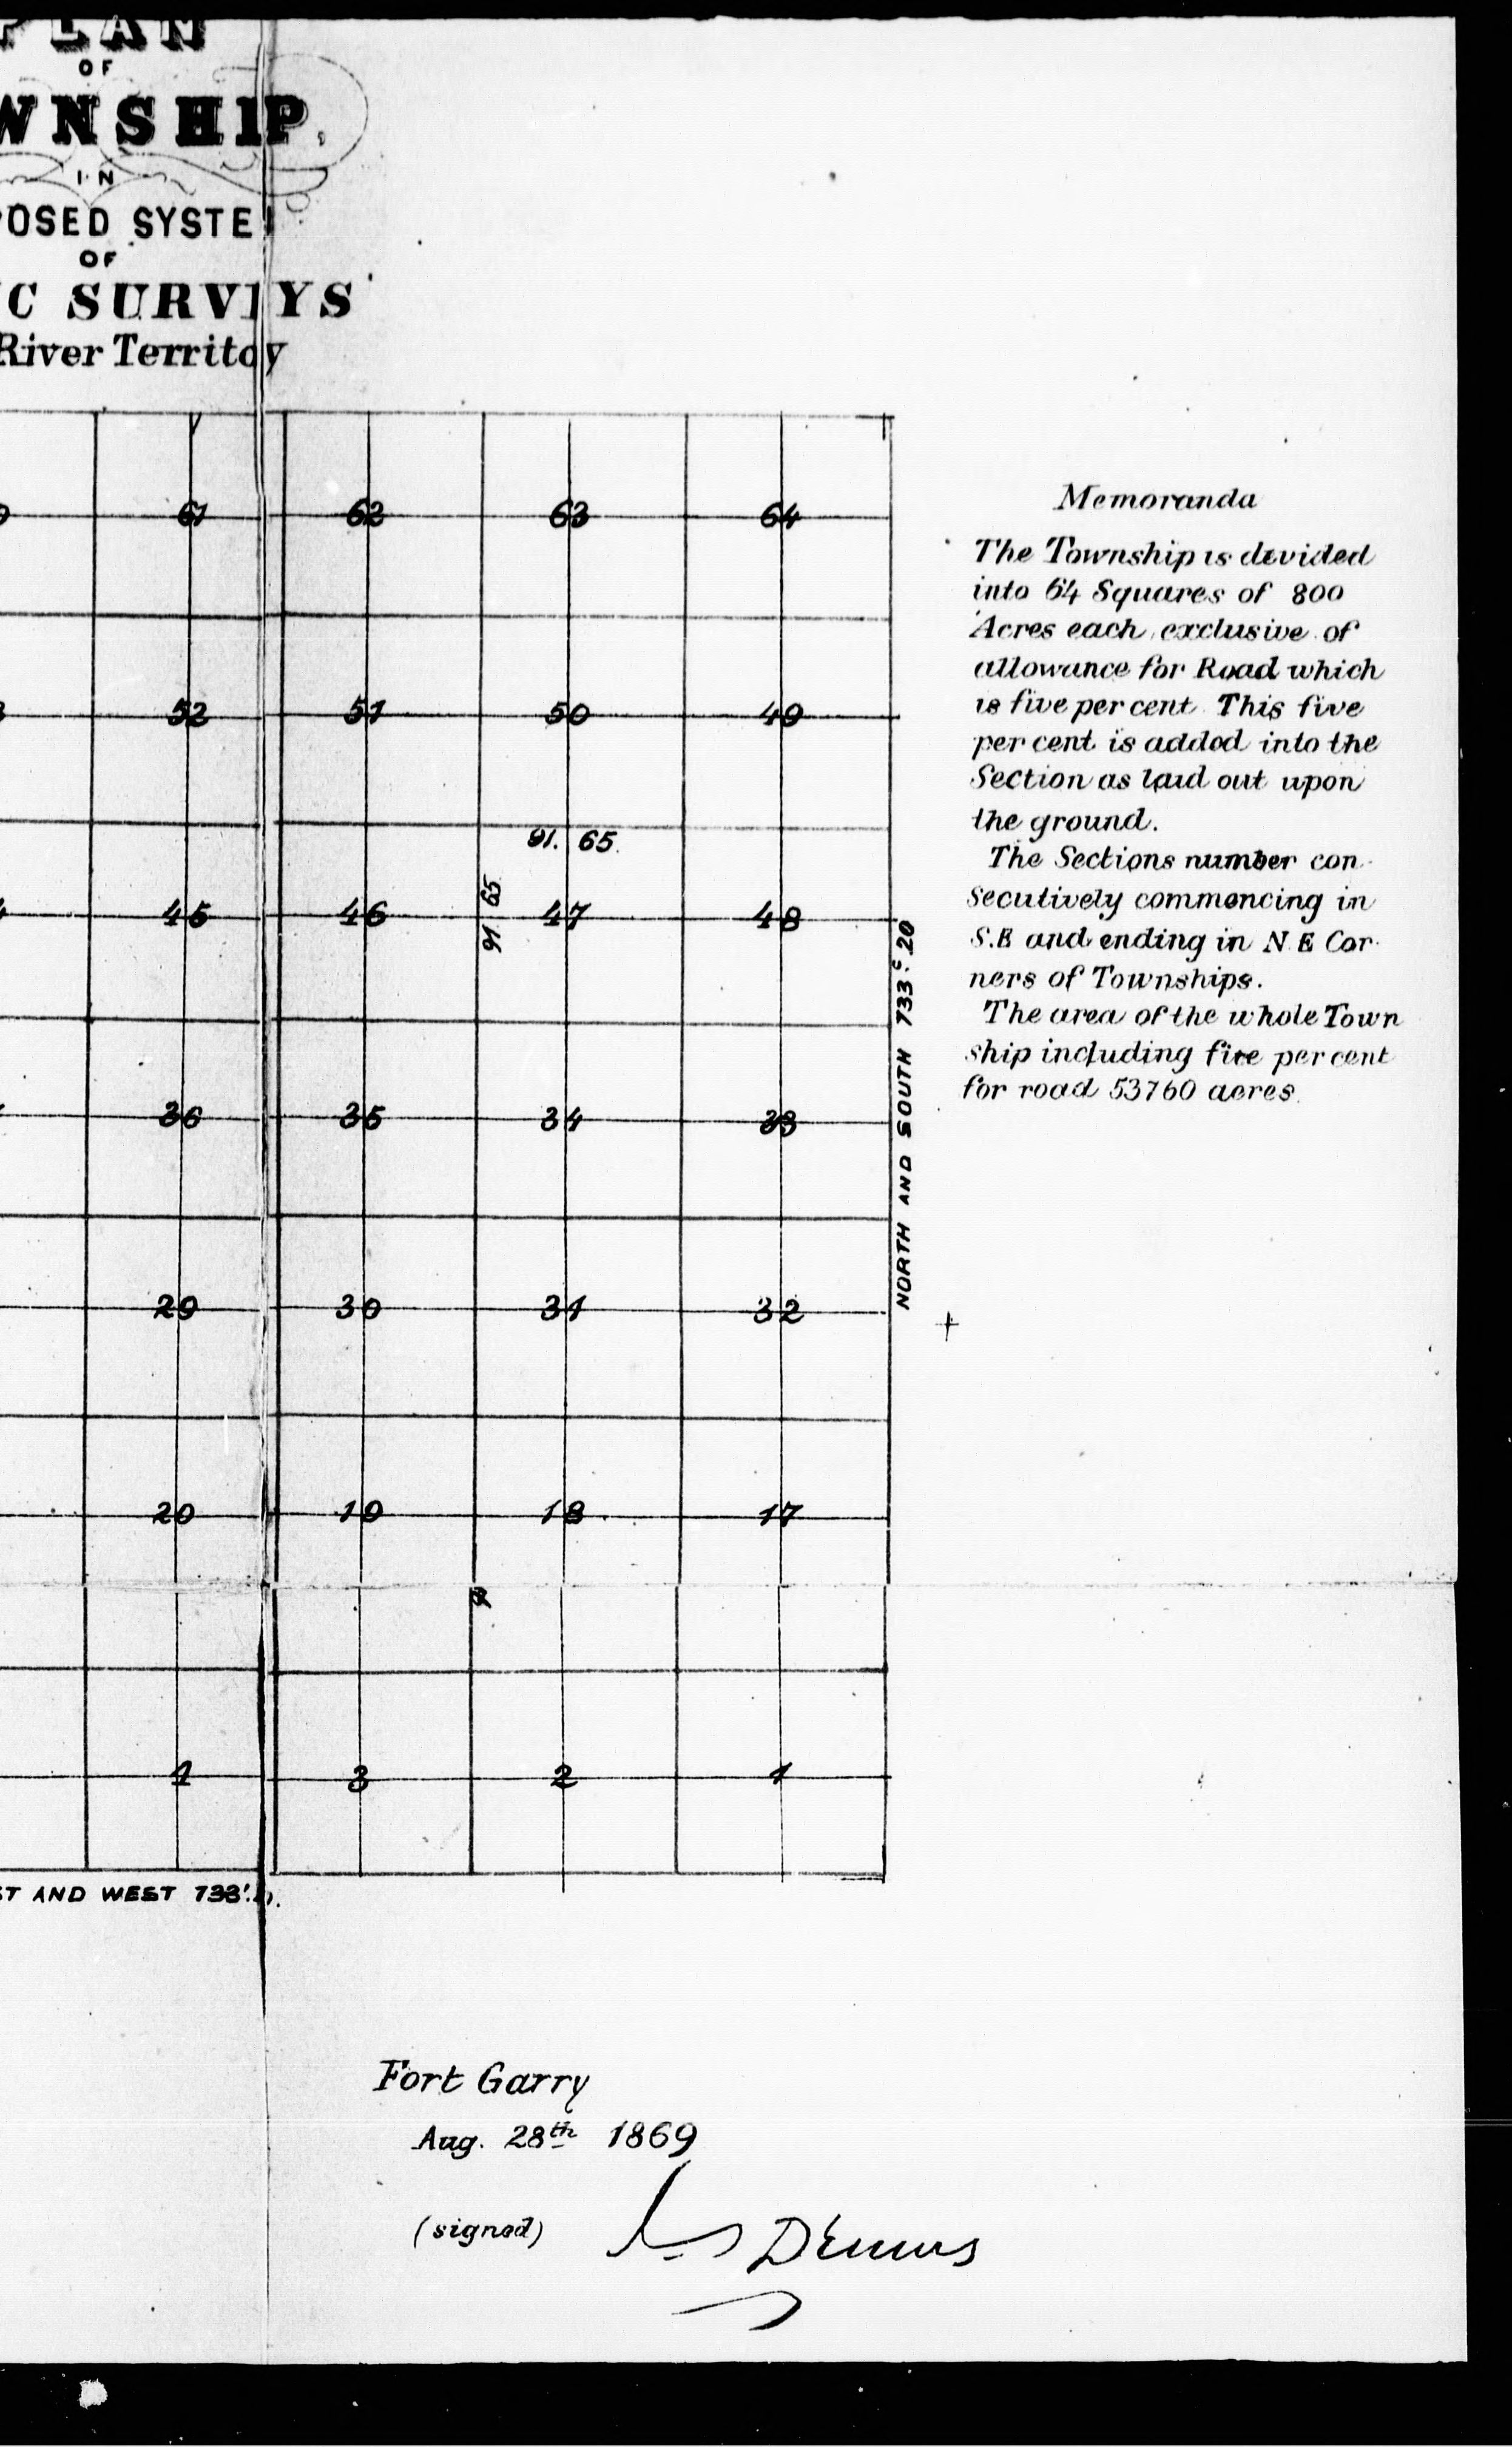 PLAN
OF
WNSHIP,
IN
POSED SYSTE
OF
C SURVEYS
River Territoy
61 62 63 64
52 51 50 49
91. 65
91 65
45 46 47 48
36 35 34 33
29 30 31 32
20 19 18 17
3 2 1
NORTH AND SOUTH 733.c 20
ST AND WEST
Memoranda
The Township is devided
into 64 Squares of 800
Acres each, exclusive of
allowance for Road which
is five per cent This five
per cent is added into the
Section as laid out upon
the ground.
The Sections number con-
secutively commencing in
S.E and ending in N.E Cor-
ners of Townships.
The area of the whole Town
ship including five per cent
for road 53760 acres.
Fort Garry
Aug. 28th 1869
(signed) Dennis